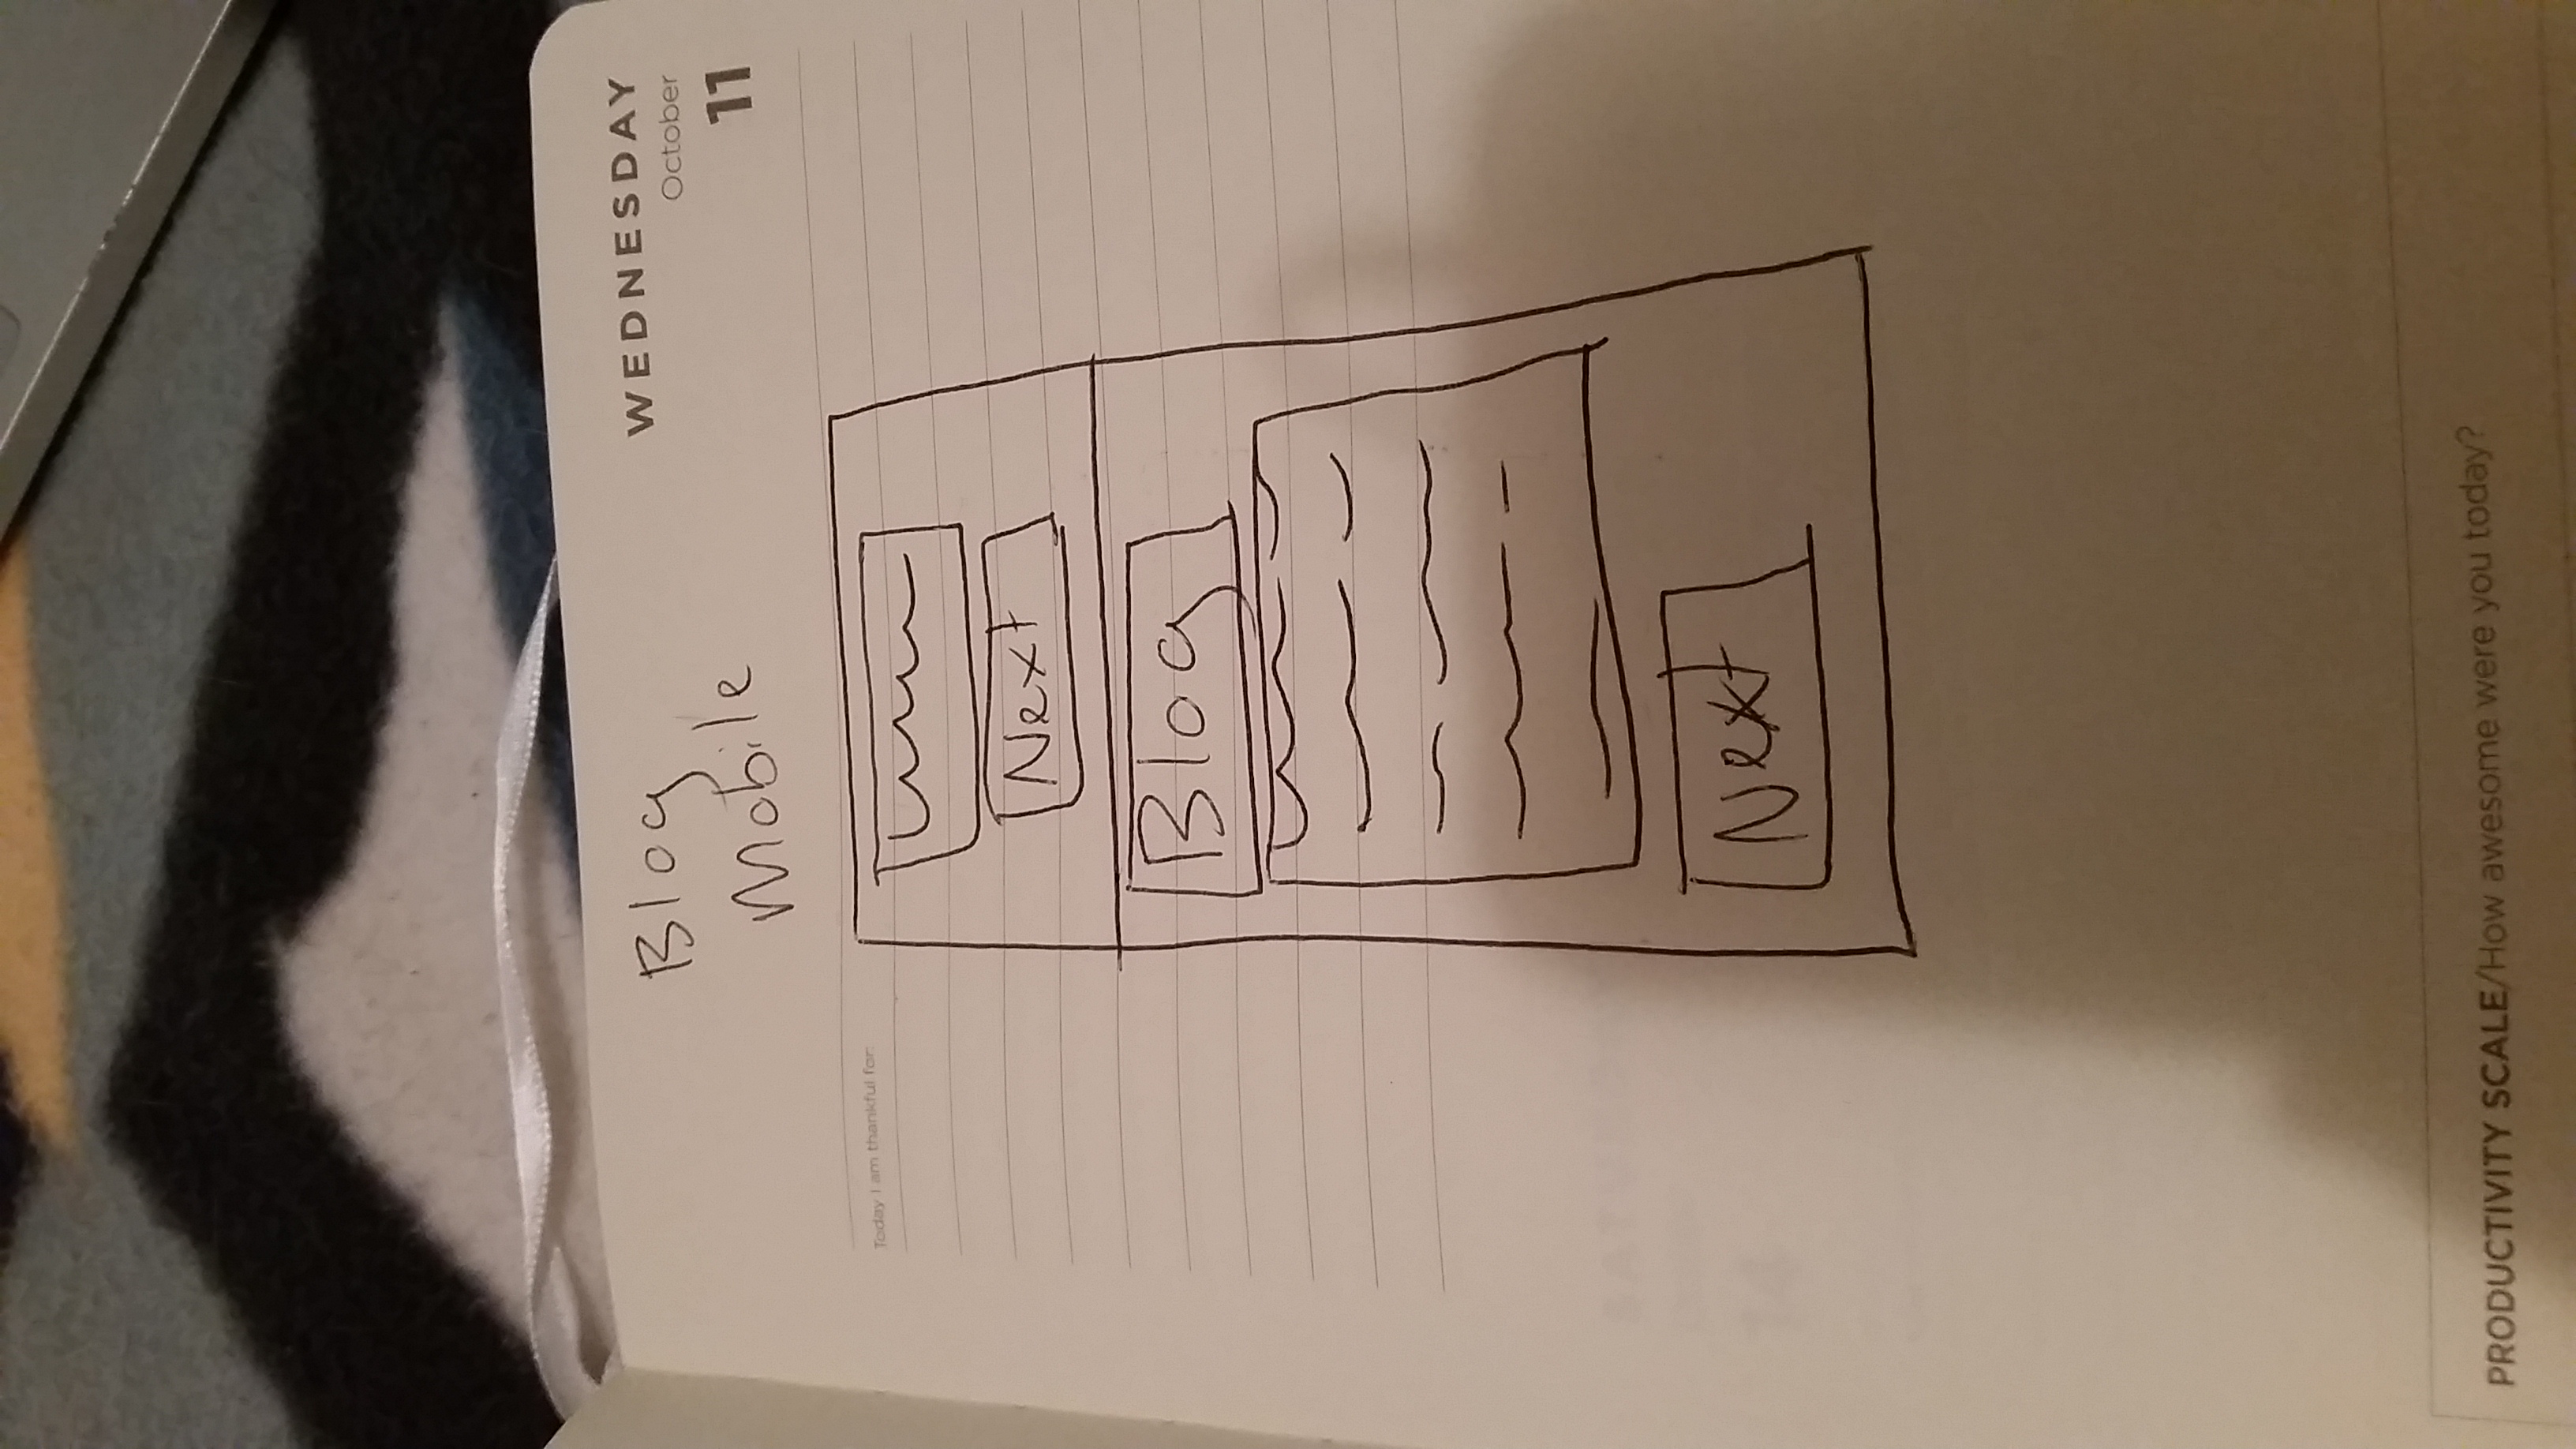 Blog
Mobile
WEDNESDAY
October
11
Today I am thankful for:
Next
Blog
Next
PRODUCTIVITY SCALE/How awesome were you today?